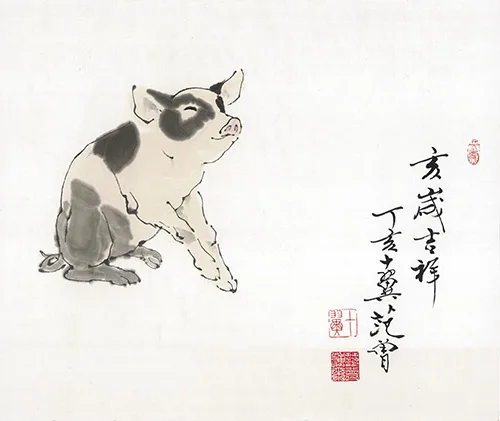 亥歲吉祥
丁亥十翼范曾
十翼